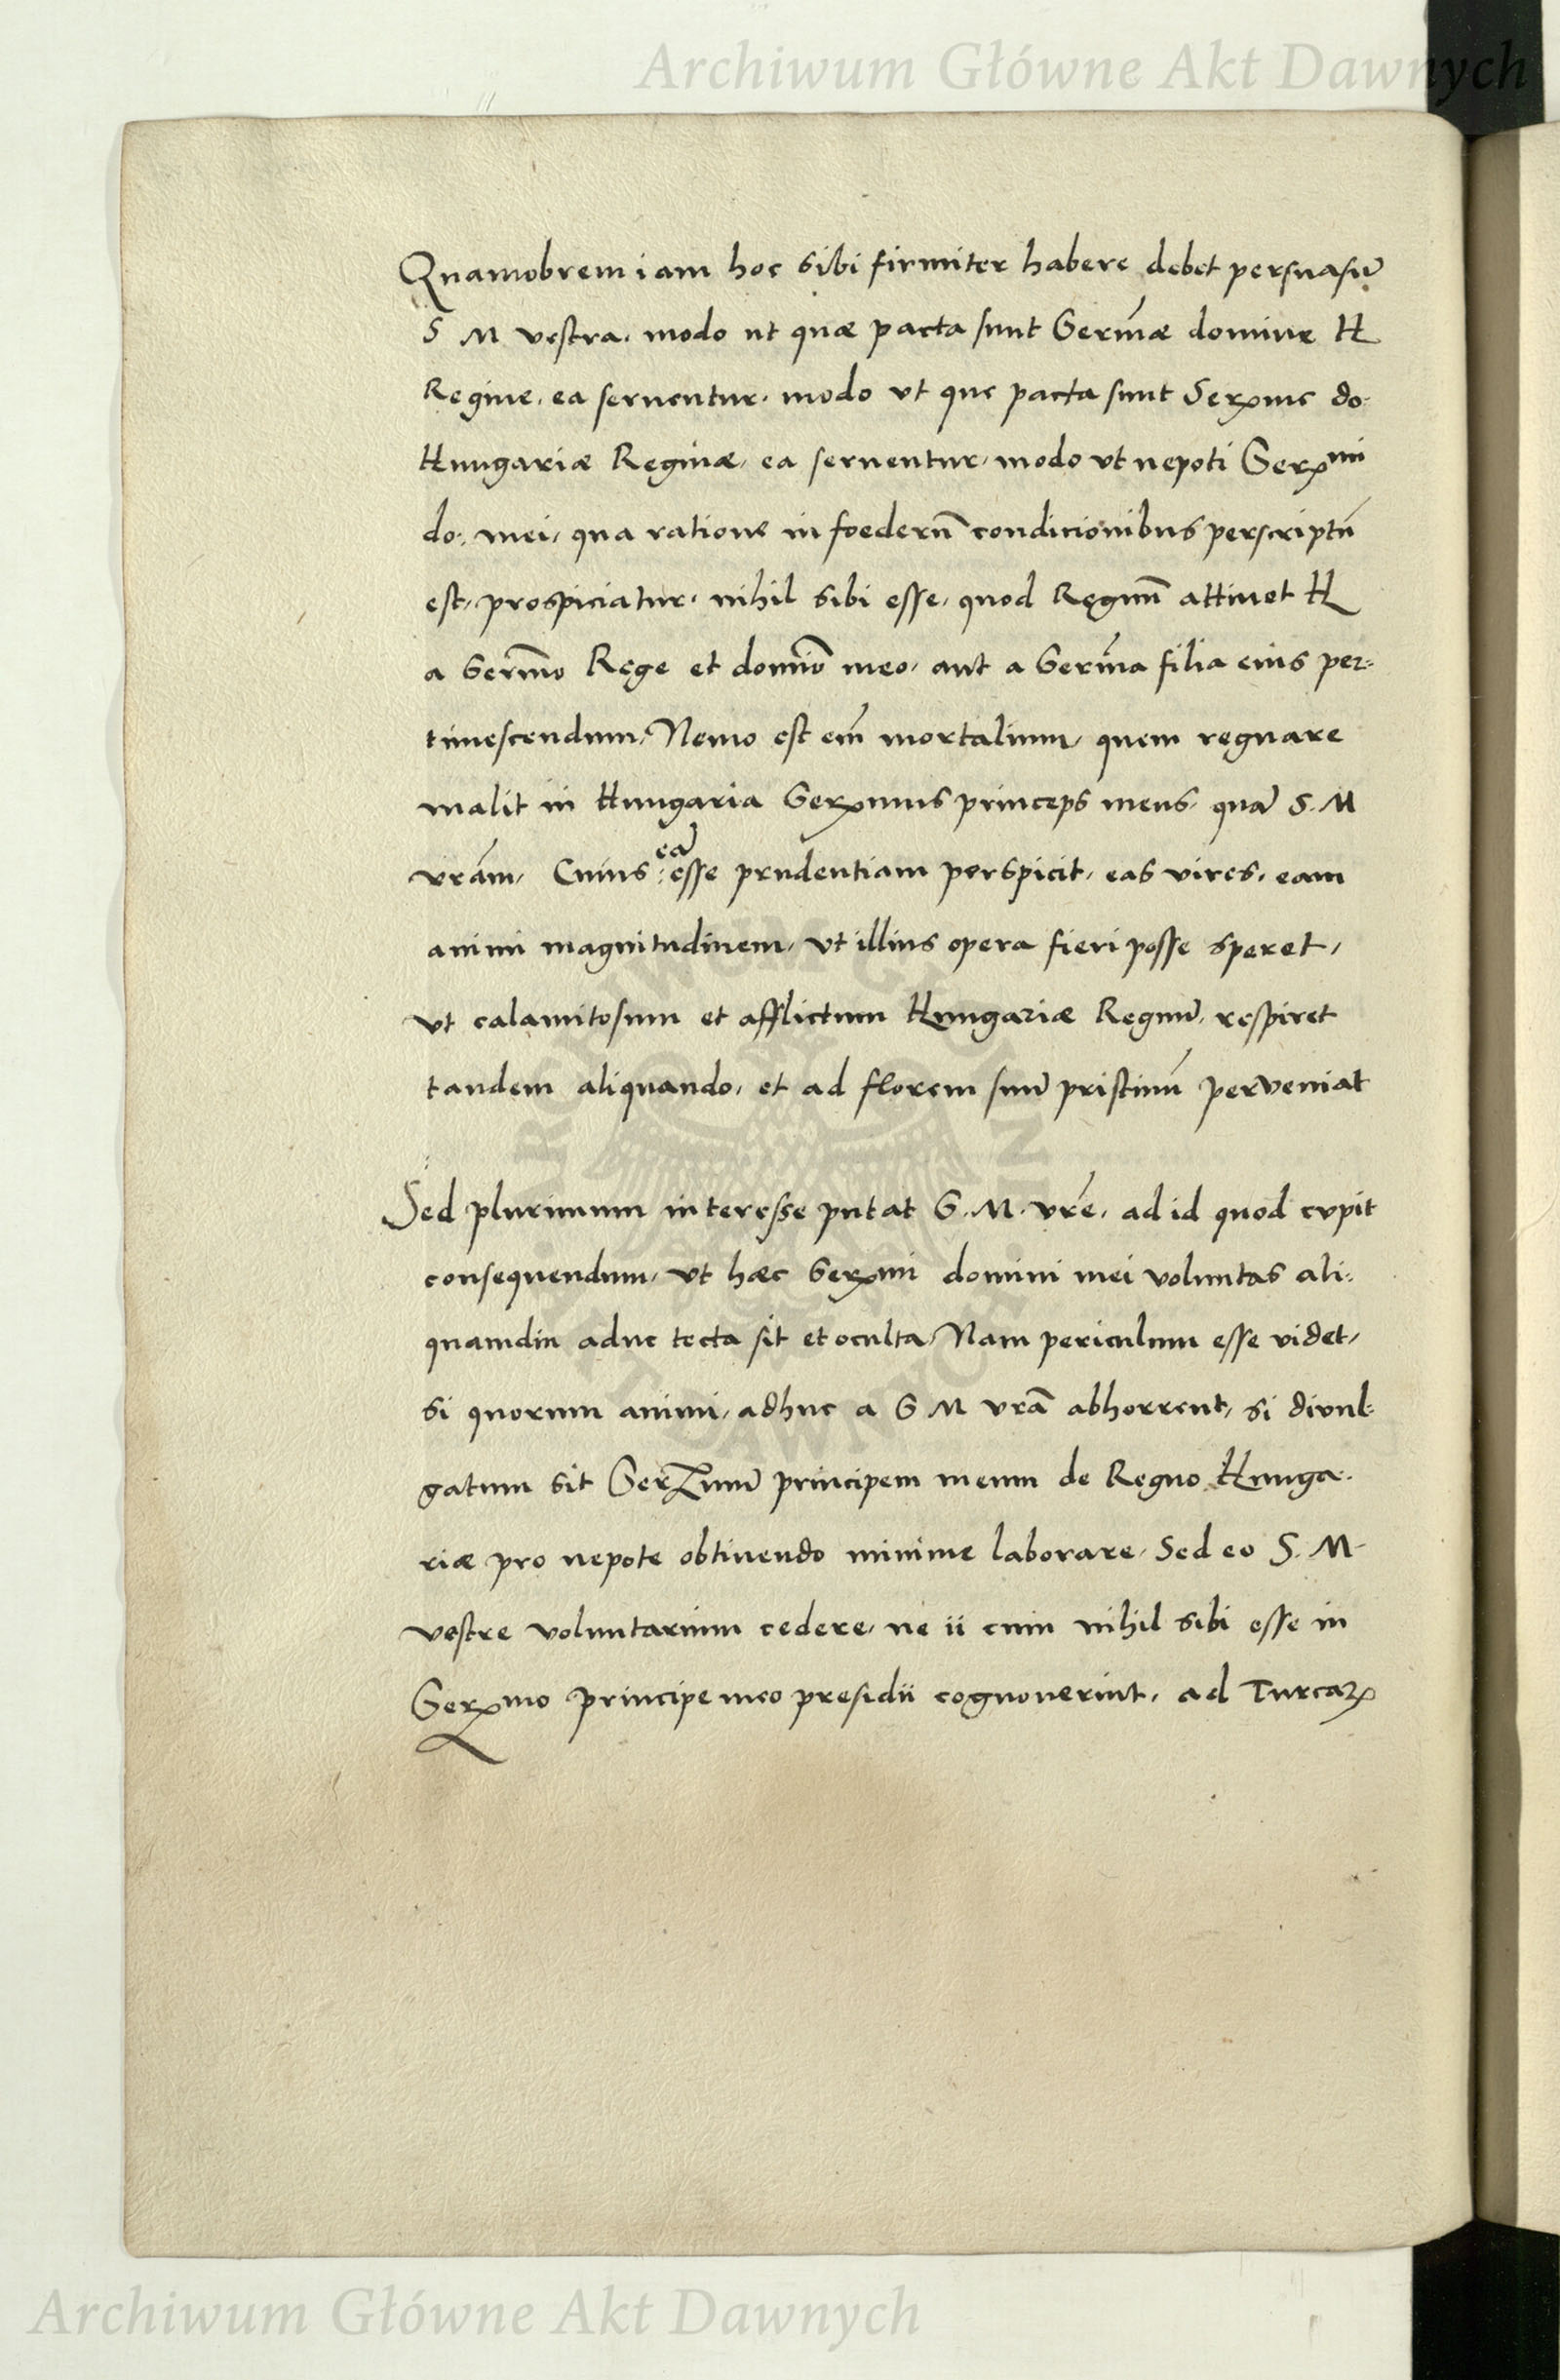 Archiwum Główne Akt Dawnych
Quamobrem iam hoc sibi firmiter habere debet persuasũ
S M vestra, modo ut quæ pacta sunt Serm̃æ domine H
Regine, ea seruentur, modo vt que pacta sunt Serxme do:
Hungariæ Reginæ, ea seruentur, modo vt nepoti Serxmi
do: mei, qua ratione in foederũ condicionibus perscriptũ
est, prospiciatur, nihil sibi esse, quod Regnũ attinet H
a Serm̃o Rege et domĩo meo, aut a Serm̃a filia eius per-
timescendum, Nemo est em̃ mortalium, quem regnare
malit in Hungaria Serxmus princeps meus, quã S. M
vrãm, Cuius eã esse prudentiam perspicit, eas vires, eam
animi magnitudinem, vt illius opera fieri posse speret,
vt calamitosum et afflictum Hungariæ Regnũ, respiret
tandem aliquando, et ad florem suũ pristinũ perveniat
Sed plurimum interesse putat S. M. vrẽ, ad id quod cupit
consequendum, vt hæc Serxmi domini mei voluntas ali-
quamdiu aduc tecta sit et oculta, Nam periculum esse videt,
si quorum animi, adhuc a S M vrã abhorrent, si diuul-
gatum sit Serxmũ principem meum de Regno Hunga-
riæ pro nepote obtinendo minime laborare, Sed eo S. M
vestre voluntarium cedere, ne ii cum nihil sibi esse in
Serxmo principe meo presidii cognouerint, ad Turcaꝝ
Archiwum Główne Akt Dawnych